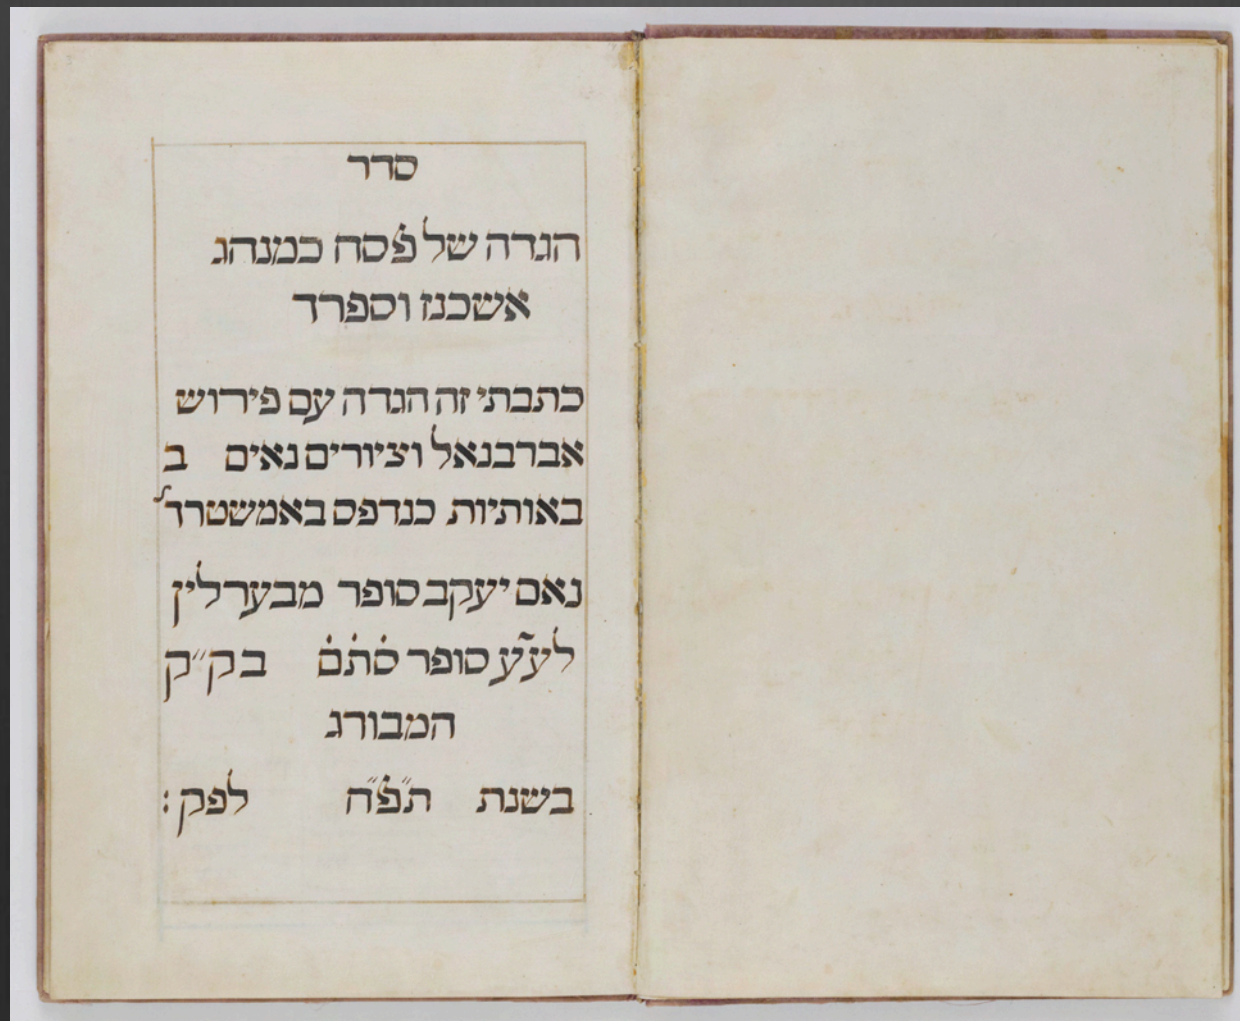 סדר
הגדה של פסח כמנהג
אשכנז וספרד
כתבתי זה הגדה עם פירוש
אברבנאל וציורים נאים ב
באותיות כנדפס באמשטרד
נאם יעקב סופר מבערלין
לע״ע סופר סת״ם בק״ק
המבורג
בשנת תפ״ח לפק :